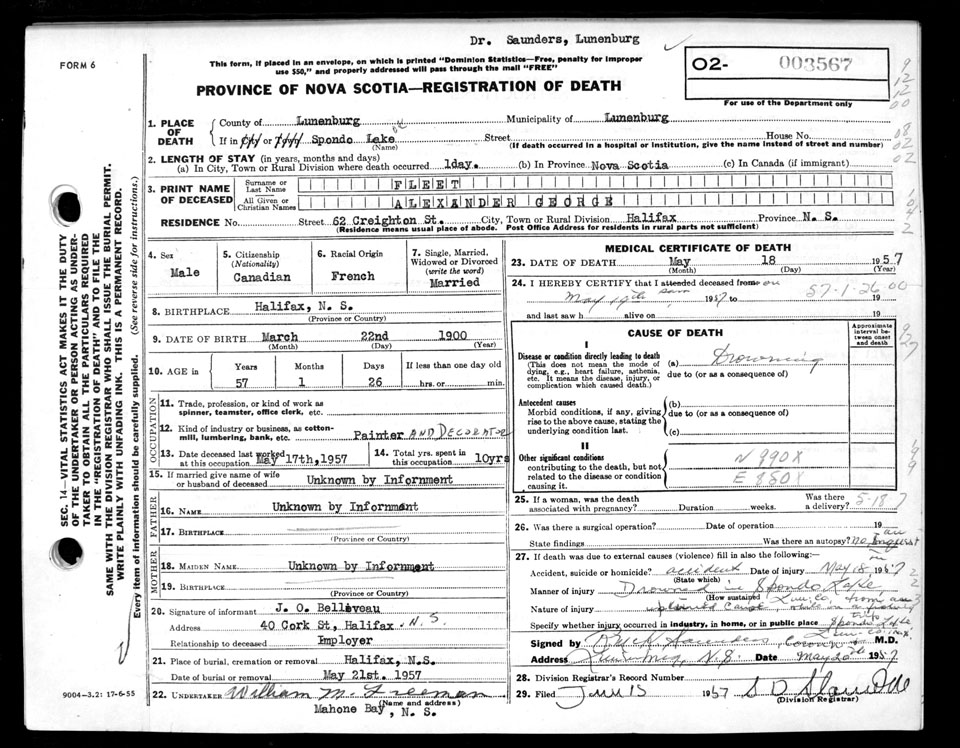 Dr. Saunders, Lunenburg
FORM 6
This form, if placed in an envelope, on which is printed "Dominion Statistics—Free, penalty for improper
use $50," and properly addressed will pass through the mail "FREE"
PROVINCE OF NOVA SCOTIA—REGISTRATION OF DEATH
02- 003567
For use of the Department only
SEC. 14—VITAL STATISTICS ACT MAKES IT THE DUTY
OF THE UNDERTAKER OR PERSON ACTING AS UNDER-
TAKER TO OBTAIN ALL THE PARTICULARS REQUIRED
IN THE "REGISTRATION OF DEATH" AND TO FILE THE
SAME WITH THE DIVISION REGISTRAR WHO SHALL ISSUE THE BURIAL PERMIT.
WRITE PLAINLY WITH UNFADING INK. THIS IS A PERMANENT RECORD.
Every item of information should be carefully supplied. (See reverse side for instructions.)
9004—3.2: 17-6-55
1. PLACE OF DEATH
County of Lunenburg Municipality of Lunenburg
If in City or Town Spondo Lake Street House No.
(Name) (If death occurred in a hospital or institution, give the name instead of street and number)
2. LENGTH OF STAY (in years, months and days)
(a) In City, Town or Rural Division where death occurred 1day. (b) In Province Nova Scotia (c) In Canada (if immigrant)
3. PRINT NAME OF DECEASED
Surname or Last Name FLEET
All Given or Christian Names ALEXANDER GEORGE
RESIDENCE No. Street 62 Creighton St. City, Town or Rural Division Halifax Province N. S.
(Residence means usual place of abode. Post Office Address for residents in rural parts not sufficient)
4. Sex
Male
5. Citizenship
(Nationality)
Canadian
6. Racial Origin
French
7. Single, Married,
Widowed or Divorced
(write the word)
Married
8. BIRTHPLACE Halifax, N. S.
(Province or Country)
9. DATE OF BIRTH March 22nd 1900
(Month) (Day) (Year)
10. AGE in
Years Months Days If less than one day old
57 1 26 hrs. or min.
OCCUPATION
11. Trade, profession, or kind of work as
spinner, teamster, office clerk, etc.
12. Kind of industry or business, as cotton-
mill, lumbering, bank, etc. Painter AND DECORATOR
13. Date deceased last worked
at this occupation May 17th,1957
14. Total yrs. spent in
this occupation 10yrs
15. If married give name of wife
or husband of deceased Unknown by Infornment
FATHER
16. NAME Unknown by Infornment
17. BIRTHPLACE
(Province or Country)
MOTHER
18. MAIDEN NAME Unknown by Infornment
19. BIRTHPLACE
(Province or Country)
20. Signature of informant J. O. Belliveau
Address 40 Cork St, Halifax N. S.
Relationship to deceased Employer
21. Place of burial, cremation or removal Halifax, N.S.
Date of burial or removal May 21st. 1957
22. UNDERTAKER William M. Freeman
(Name and address)
Mahone Bay, N. S.
MEDICAL CERTIFICATE OF DEATH
23. DATE OF DEATH May 18 1957
(Month) (Day) (Year)
24. I HEREBY CERTIFY that I attended deceased from
May 19th 1957 to 19
57-1-26 00
and last saw h alive on 19
CAUSE OF DEATH
Approximate
interval be-
tween onset
and death
I
Disease or condition directly leading to death
(This does not mean the mode of
dying, e.g., heart failure, asthenia,
etc. It means the disease, injury, or
complication which caused death.)
(a) Drowning
due to (or as a consequence of)
Antecedent causes
Morbid conditions, if any, giving
rise to the above cause, stating the
underlying condition last.
(b)
due to (or as a consequence of)
(c)
II
Other significant conditions
contributing to the death, but not
related to the disease or condition
causing it.
N 990X
E 850X
25. If a woman, was the death
associated with pregnancy? Duration weeks. Was there
a delivery?
5-18 7
26. Was there a surgical operation? Date of operation 19
State findings Was there an autopsy? no
27. If death was due to external causes (violence) fill in also the following:—
Accident, suicide or homicide? accident Date of injury May 18 1957
(State which)
Manner of injury Drowned in Spondo Lake
(How sustained)
Nature of injury
Specify whether injury occurred in industry, in home, or in public place Spondo Lake
Signed by Saunders M.D.
Address N.S. Date May 20th 1957
28. Division Registrar's Record Number
29. Filed June 15 1957
(Division Registrar)